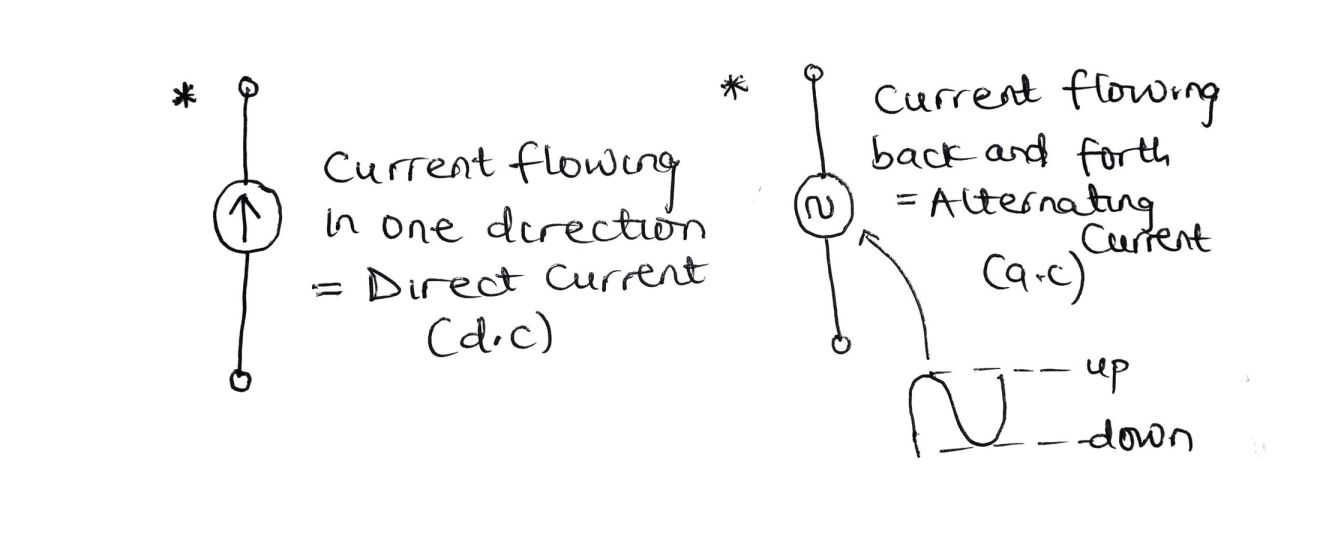 * Current flowing
in one direction
= Direct Current
(d.c)
* Current flowing
back and forth
= Alternating
Current
(a.c)
up
down